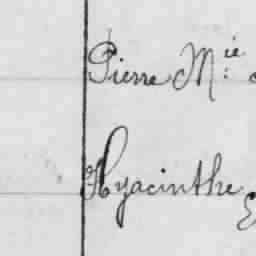 Pierre M.ie
Hyacinthe